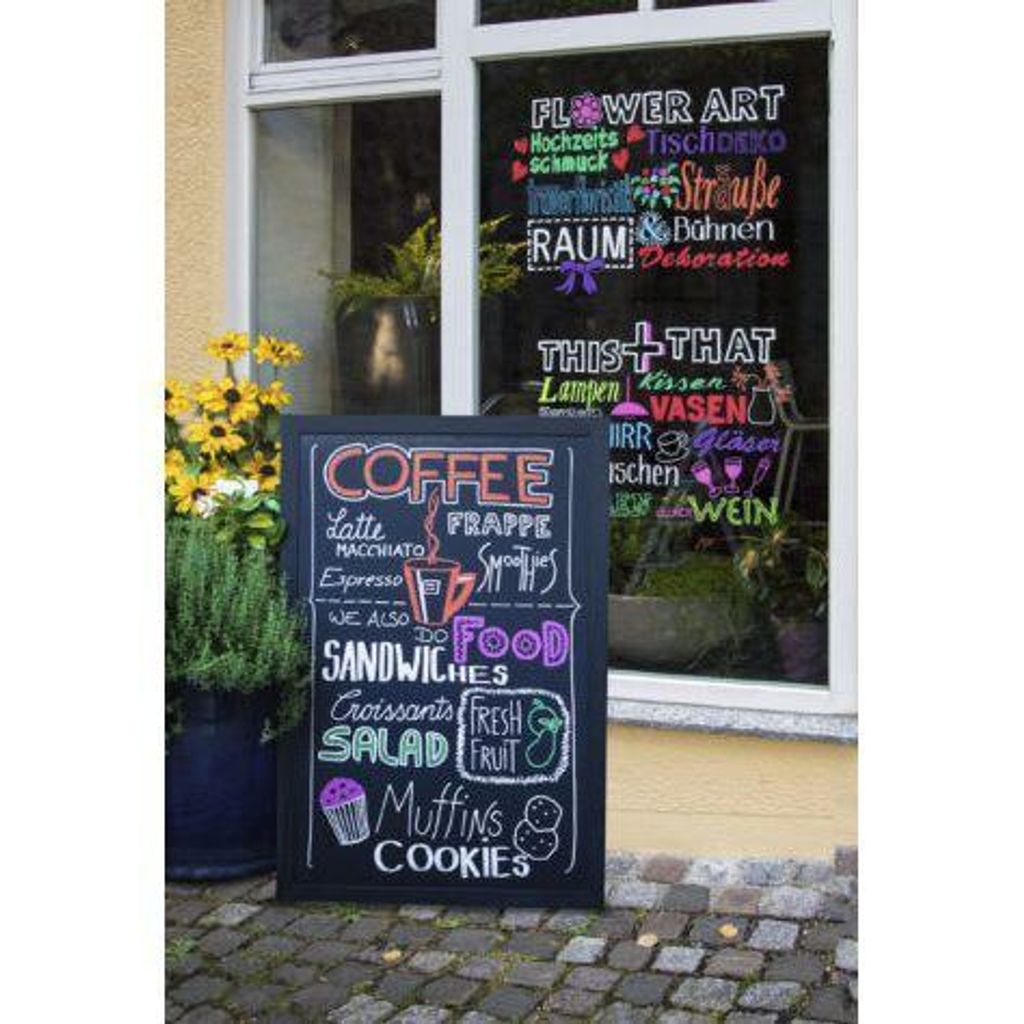 FLOWER ART
Hochzeits schmuck
TischDEKO
Trauerfloristik
Sträuße
RAUM & Bühnen
Dekoration
THIS + THAT
Lampen
Kissen
VASEN
Gläser
WEIN
COFFEE
Latte MACCHIATO
FRAPPE
Espresso
SMOOTHIES
WE ALSO DO FOOD
SANDWICHES
Croissants
SALAD
FRESH FRUIT
Muffins
COOKIES